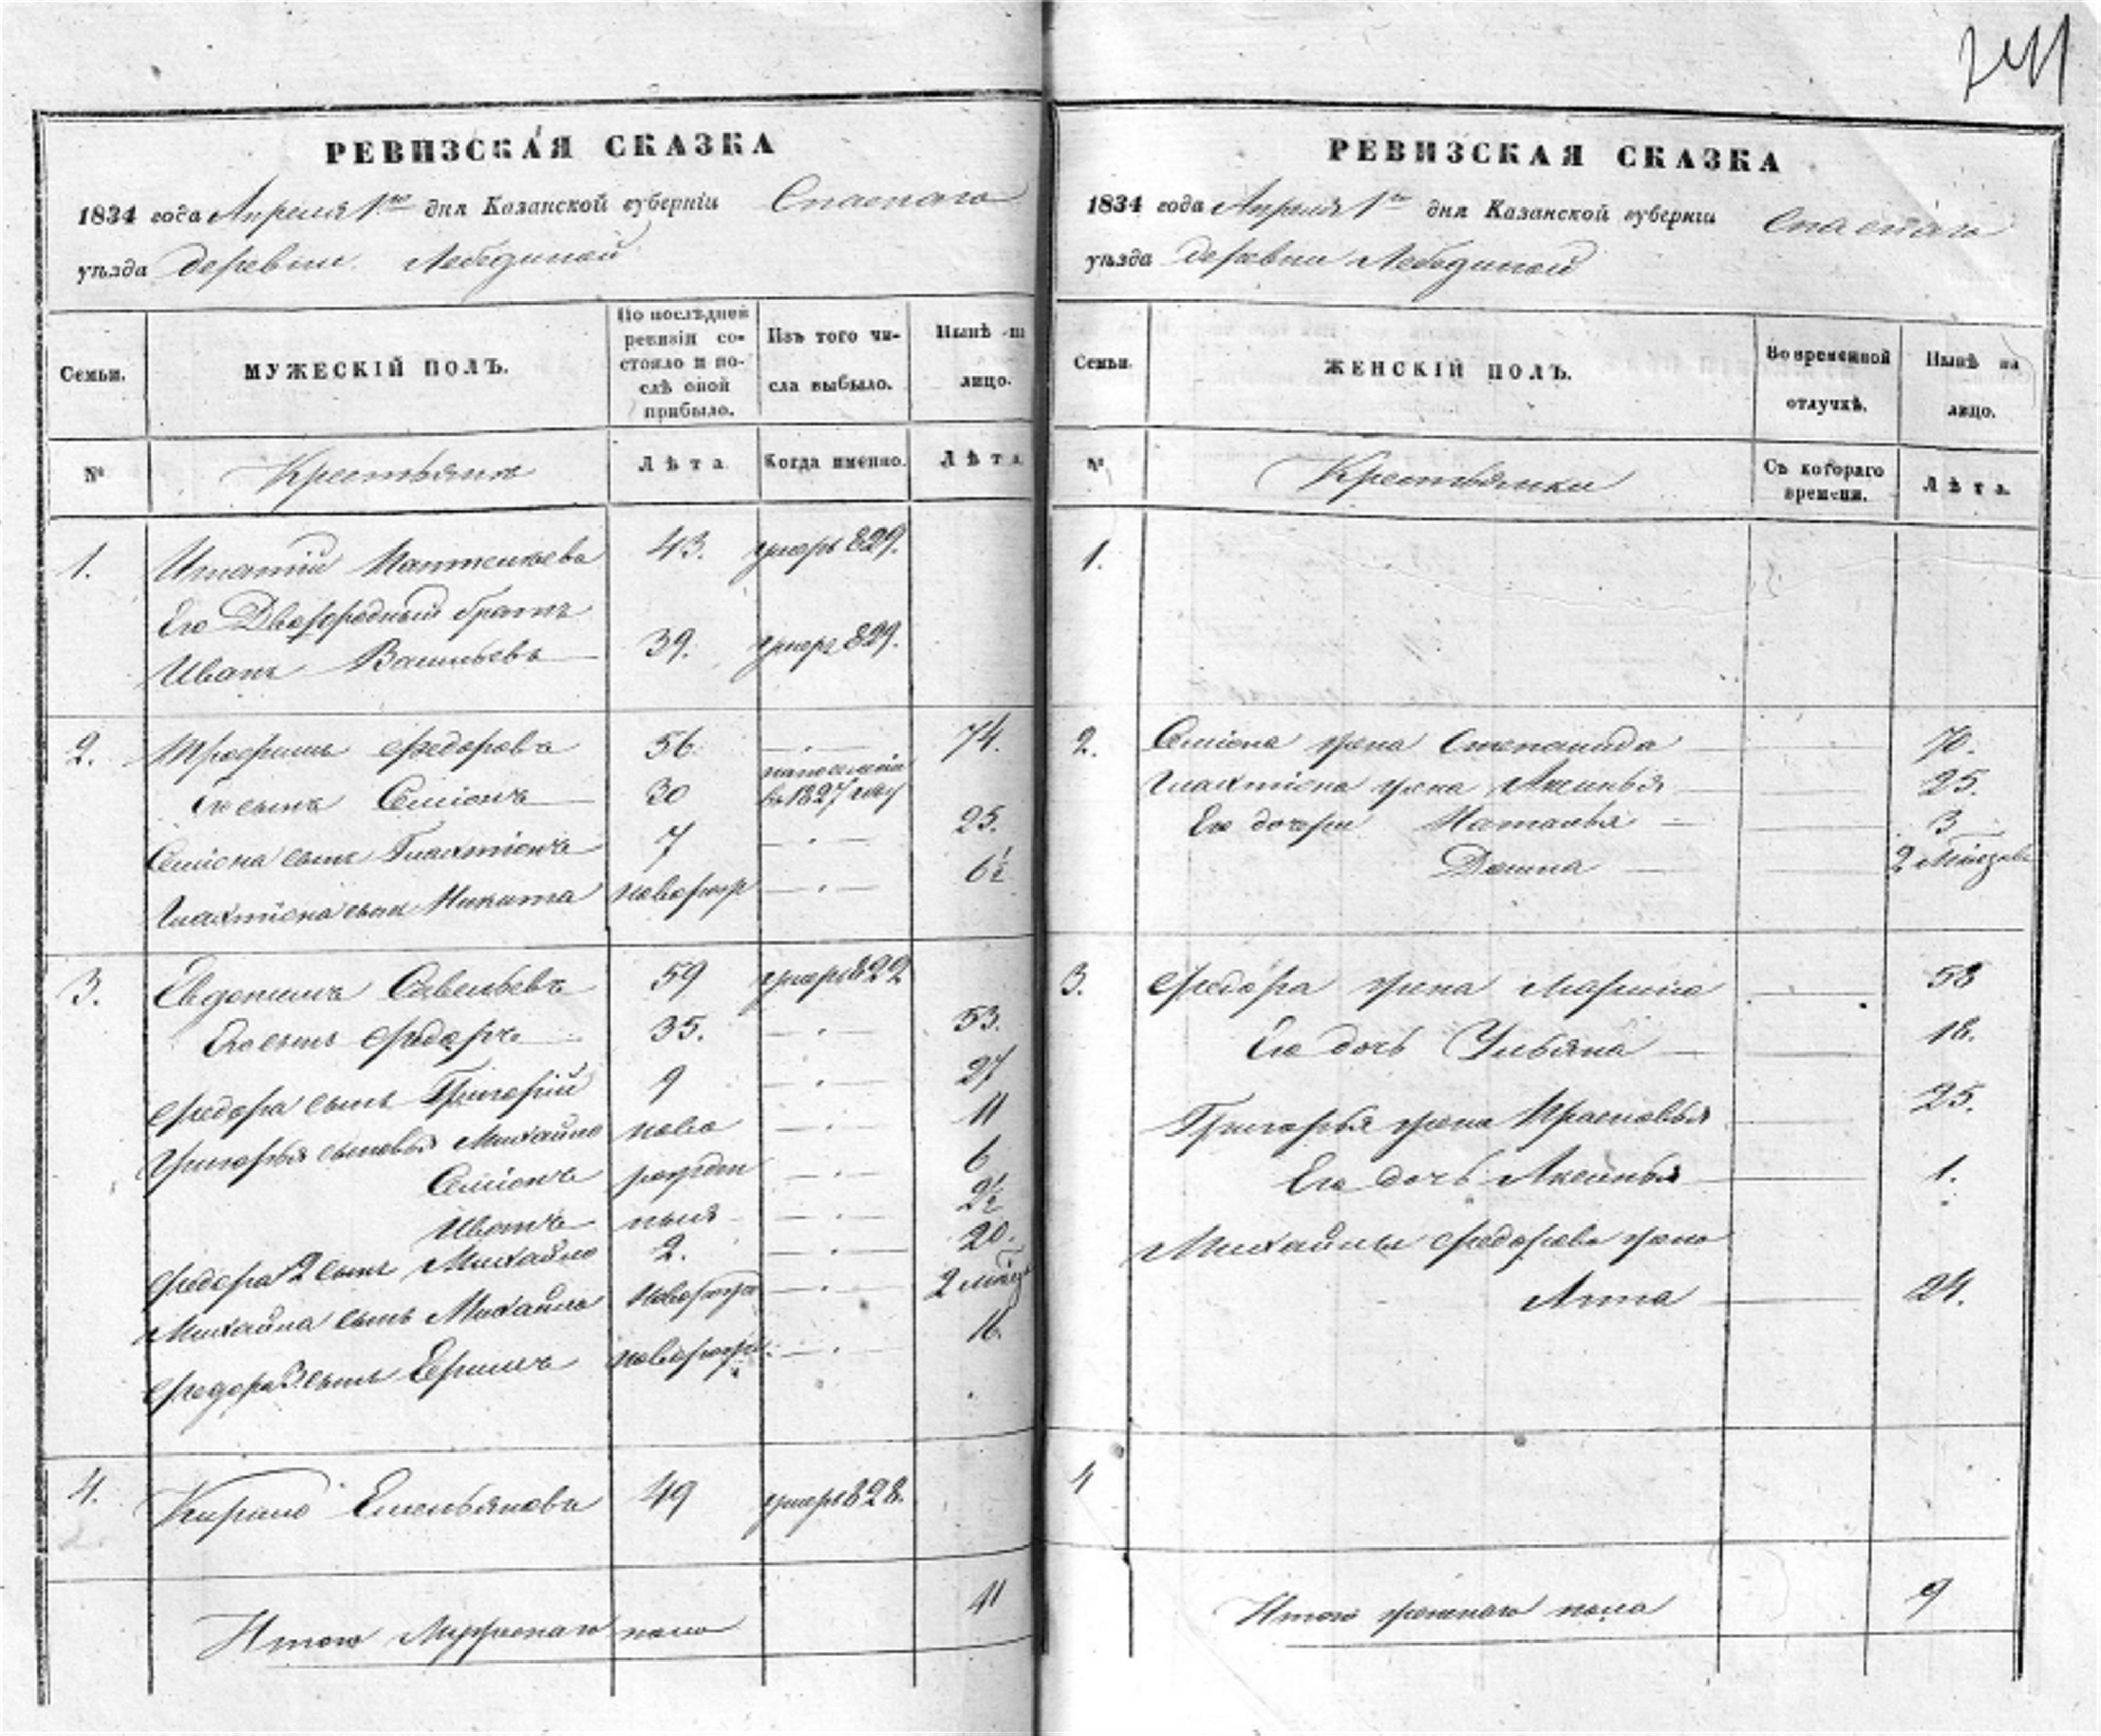 РЕВИЗСКАЯ СКАЗКА
1834 года Апреля 1го дня Казанской губернiи Спаскаго
уѣзда деревни Лебединой
Семьи. МУЖЕСКIЙ ПОЛЪ. По послѣдней ревизiи состояло и послѣ оной прибыло. Изъ того числа выбыло. Нынѣ на лицо.
№ Крестьяне Лѣта Когда именно. Лѣта
1. Игнатiй 43. умеръ 829.
Его Двоюродный братъ
Иванъ Васильевъ 39. умеръ 829.
2. Трофимъ Федоровъ 56. 74.
Его сынъ Семiонъ 30 на поселенiе въ 1827 году
Семiона сынъ Галахтiонъ 7 25.
Галахтiона сынъ Никита новорож 6½
3. Евдокимъ Савельевъ 59 умеръ 822
Его сынъ Федоръ 35. 53.
Федора сынъ Григорiй 9 27
Григорья сыновья Михайло ново 11
Семiонъ рожден 6
Иванъ ныя 2½
Федора 2 сынъ Михайло 2. 20.
Михайла сынъ Михайло новорож 2 мѣся
Федора 3 сынъ Ефимъ новорож. 16.
4. Кирило Емельяновъ 49 умеръ 828.
Итого Мужескаго пола 11
241
РЕВИЗСКАЯ СКАЗКА
1834 года Апреля 1го дня Казанской губернiи Спаскаго
уѣзда деревни Лебединой
Семьи. ЖЕНСКIЙ ПОЛЪ. Во временной отлучкѣ. Нынѣ на лицо.
№ Крестьянки Съ котораго времени. Лѣта.
1.
2. Семiона жена Степанида 70.
Галахтiона жена Аксинья 25.
Его дочери Наталья 3
Домна 2 мѣсяцовъ
3. Федора жена Марина 58
Его дочь Ульяна 18.
Григорья жена Прасковья 25.
Его дочь Аксинья 1.
Михайлы Федорова жена
Анна 24.
4
Итого женскаго пола 9